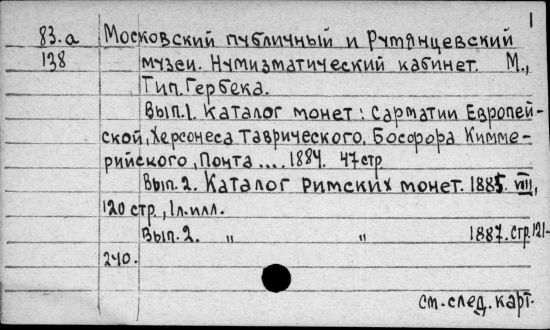 1
83.а Московский публичный и Румянцевский
138 музеи. Нумизматический кабинет. М.,
Тип. Гербека.
Вып.1. Каталог монет: Сарматии Европей-
ской, Херсонеса Таврического, Босфора Кимме-
рийского, Понта .... 1884. 47 стр
Вып.2. Каталог римских монет. 1885. VIII,
120 стр., 1л.илл.
Вып.2. " " 1887. стр.121-
240.
см. след. карт.